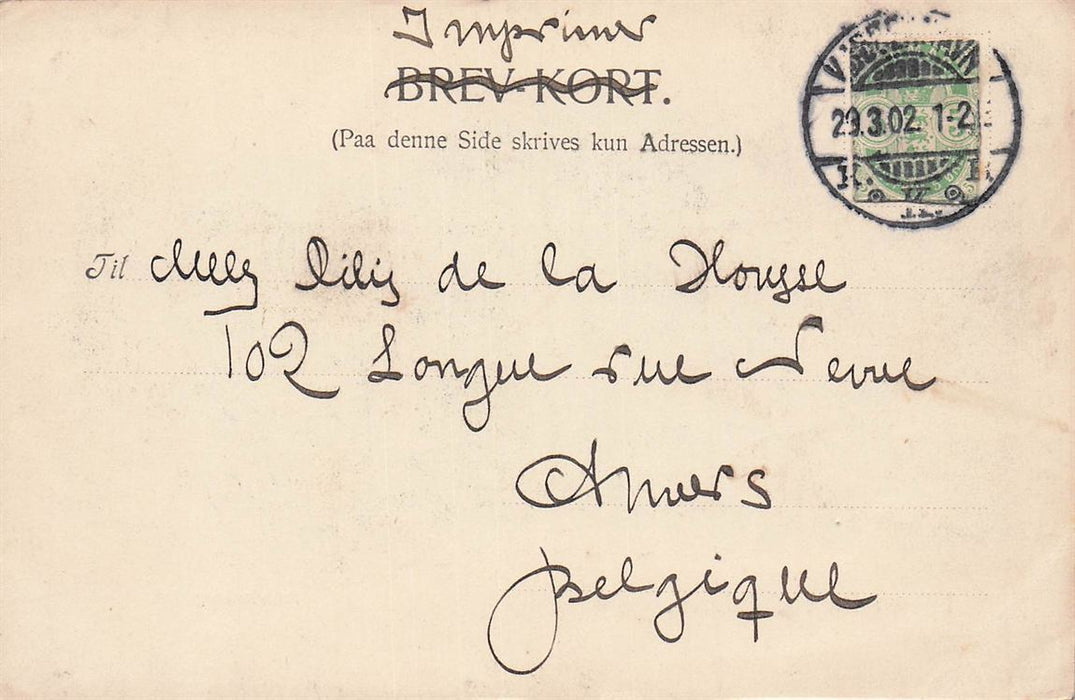 Imprimer
BREV-KORT.
(Paa denne Side skrives kun Adressen.)
29.3.02 1-2
K.
Til de la Housse
102 Longue rue Neuve
Anvers
Belgique